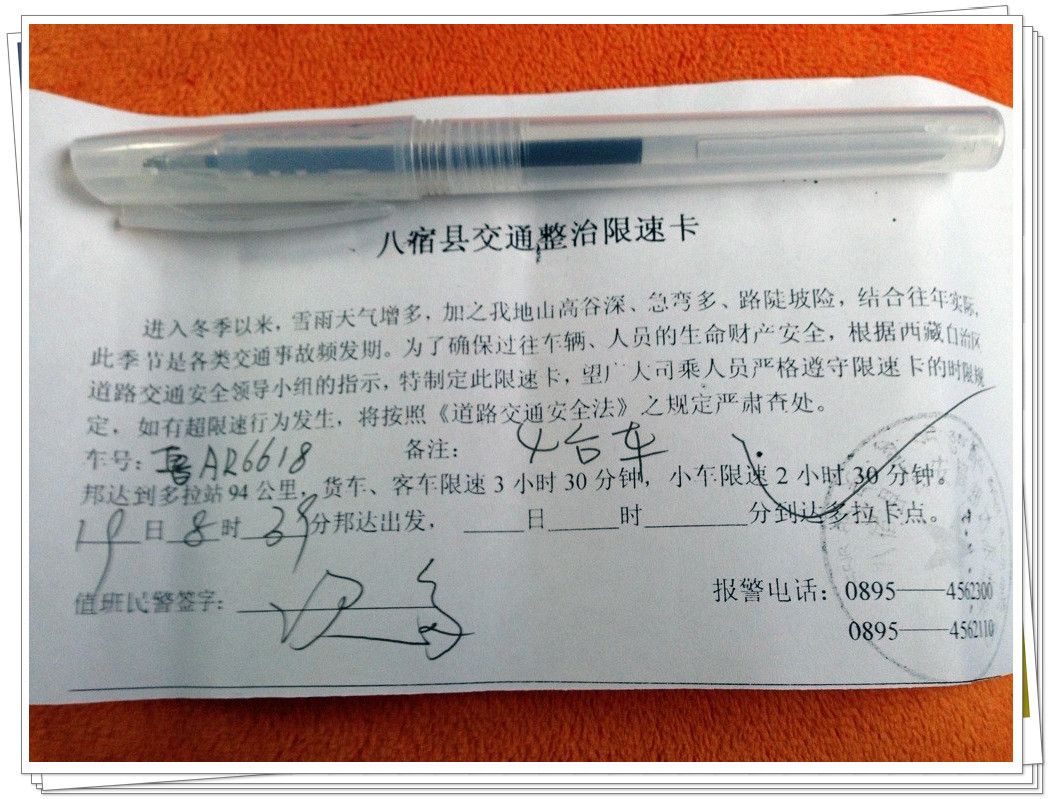 八宿县交通整治限速卡
进入冬季以来，雪雨天气增多，加之我地山高谷深、急弯多、路陡坡险，结合往年实际，
此季节是各类交通事故频发期。为了确保过往车辆、人员的生命财产安全，根据西藏自治区
道路交通安全领导小组的指示，特制定此限速卡，望广大司乘人员严格遵守限速卡的时限规
定，如有超限速行为发生，将按照《道路交通安全法》之规定严肃查处。
车号：鲁AR6618 备注：4台车
邦达到多拉站 94 公里，货车、客车限速 3 小时 30 分钟，小车限速 2 小时 30 分钟。
19日8时39分邦达出发，____日____时______分到达多拉卡点。
值班民警签字： 报警电话：0895——4562300
0895——4562110